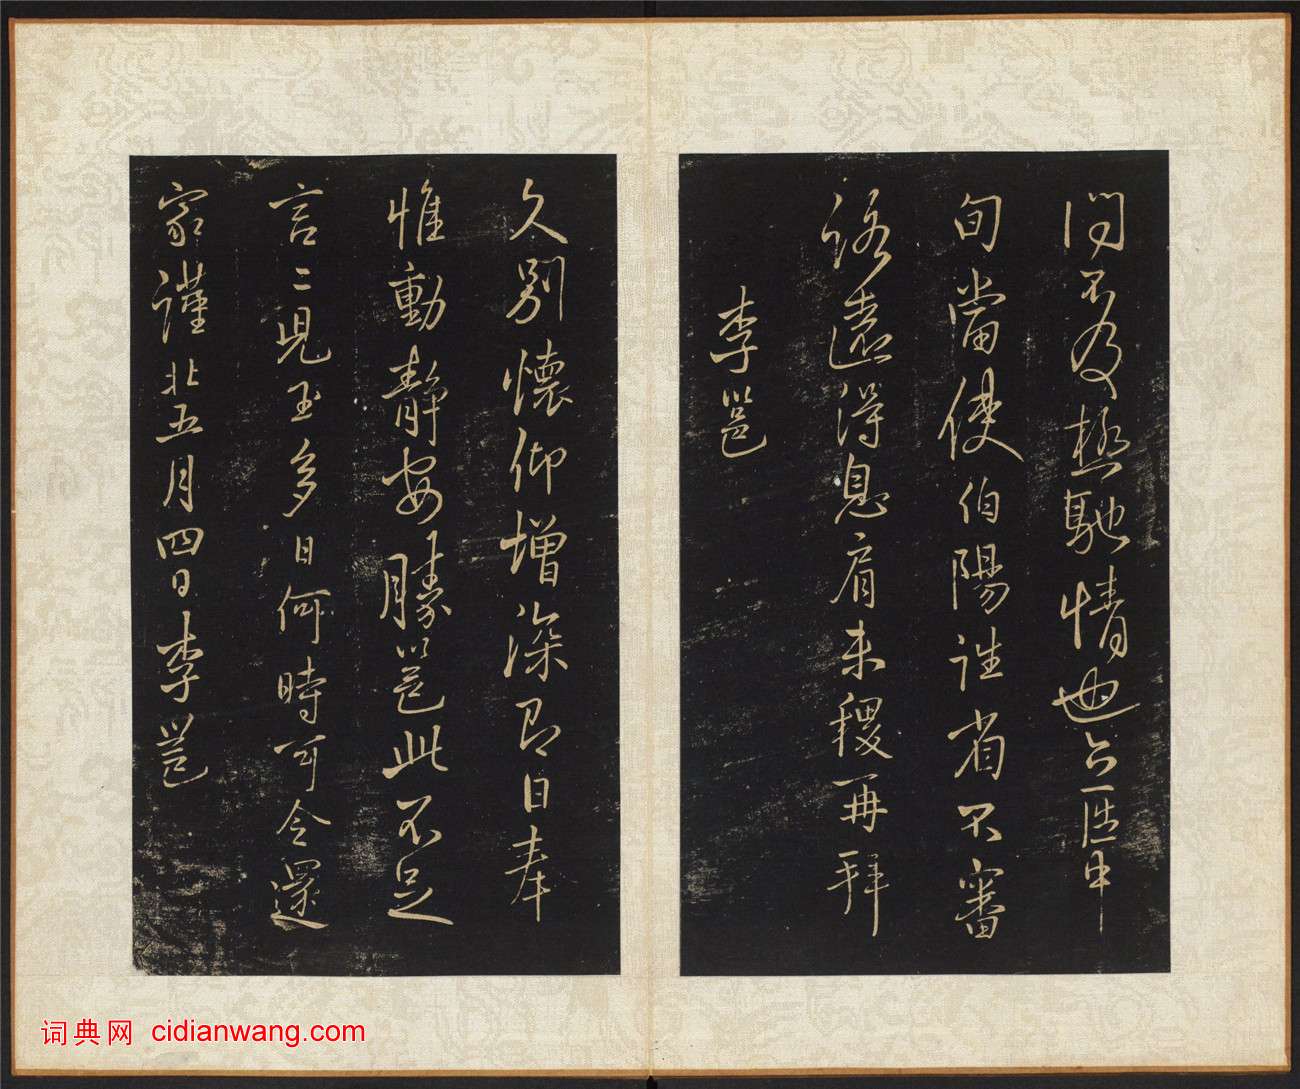 問不及極馳情也令一匹中
旬當使伯陽詣省不審
路遠得息肩未稷再拜
李邕
久別懷仰增深即日奉
惟動靜安勝邕此不足
言言見玉多日何時可令還
家謹此五月四日李邕
词典网 cidianwang.com